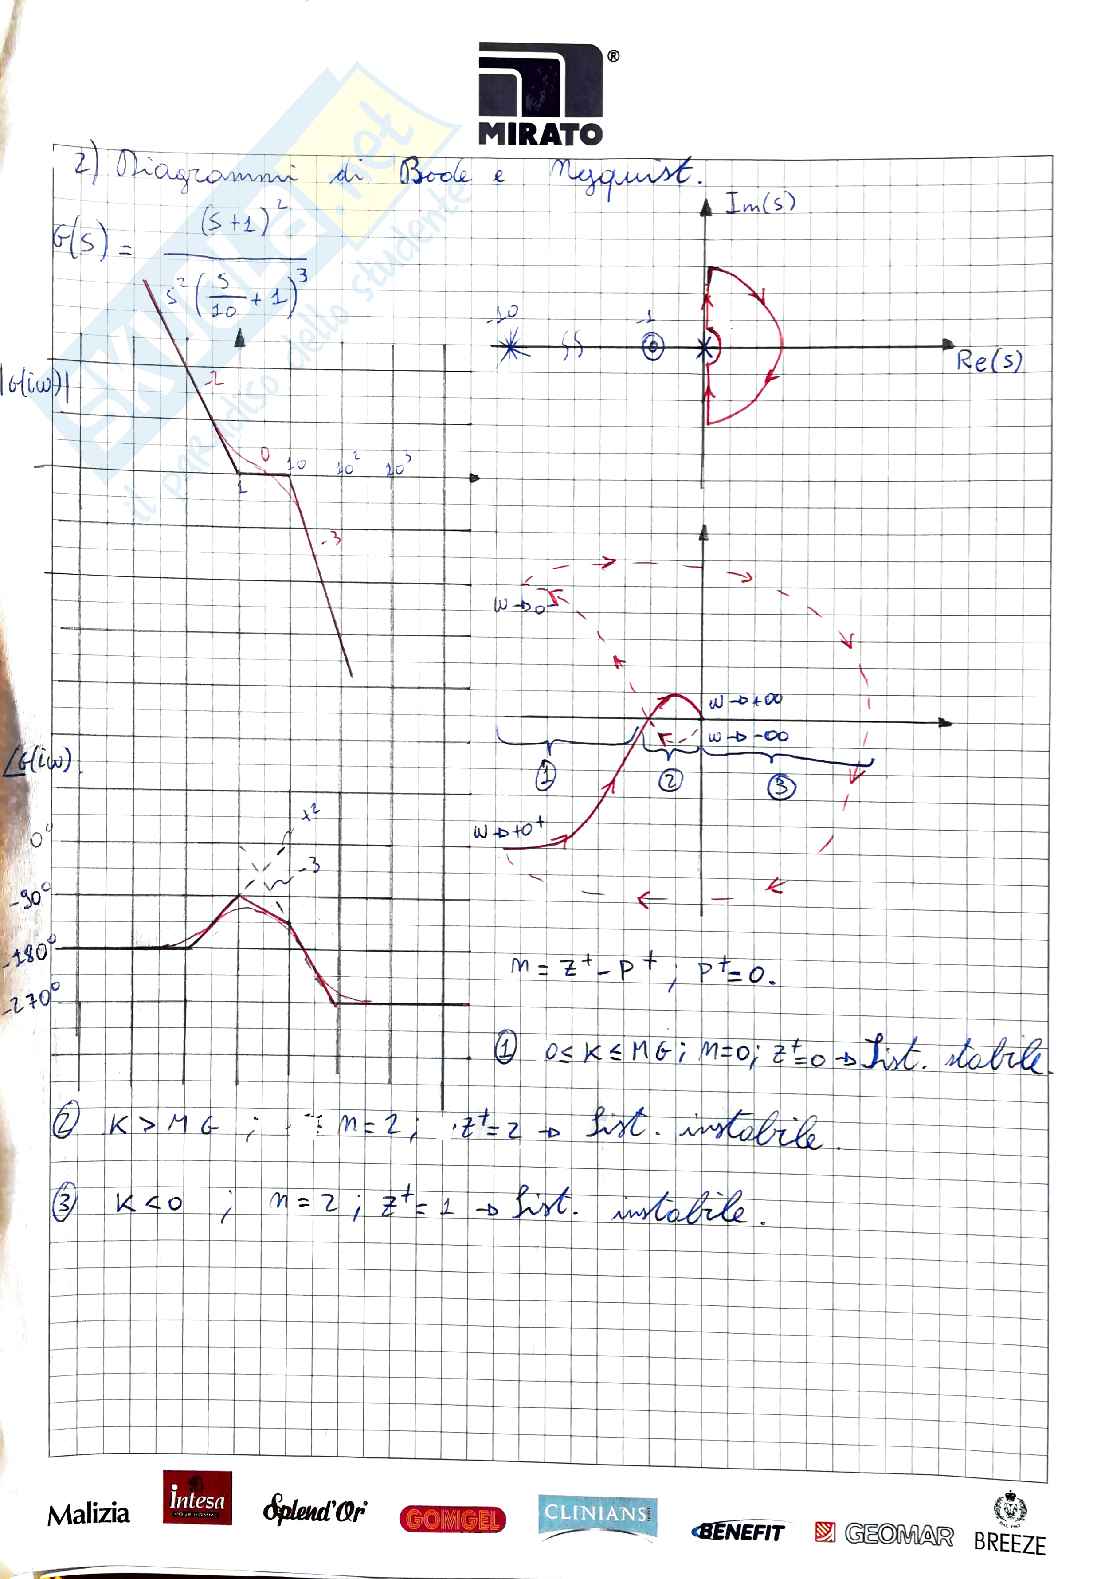 MIRATO ®
2) Diagrammi di Bode e Nyquist.
G(s) = (s+1)^2 / s^2 (s/10 + 1)^3
SKUOLA.net
il paradiso dello studente
Im(s)
-10
-1
Re(s)
|G(iω)|
-2
0
1
10
10^2
10^3
-3
ω→0^-
ω→+∞
ω→-∞
① ② ③
ω→+0^+
∠G(iω)
+2
-3
0°
-90°
-180°
-270°
n = z^+ - p^+ ; p^+=0.
① 0≤K≤MG; n=0; z^+=0 → Sist. stabile.
② K>MG ; n=2; z^+=2 → Sist. instabile.
③ K<0 ; n=2; z^+=1 → Sist. instabile.
Malizia
intesa
Splend'Or
GOMGEL
CLINIANS
BENEFIT
GEOMAR
BREEZE